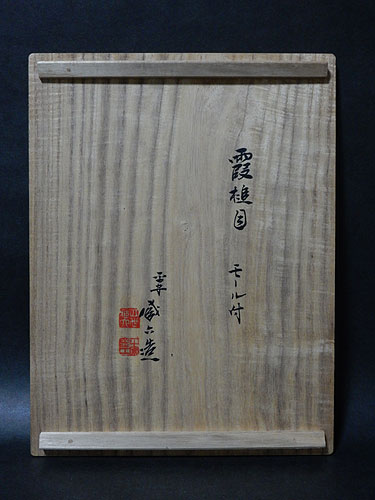 霞槌目
モール付
平安 蔵六造